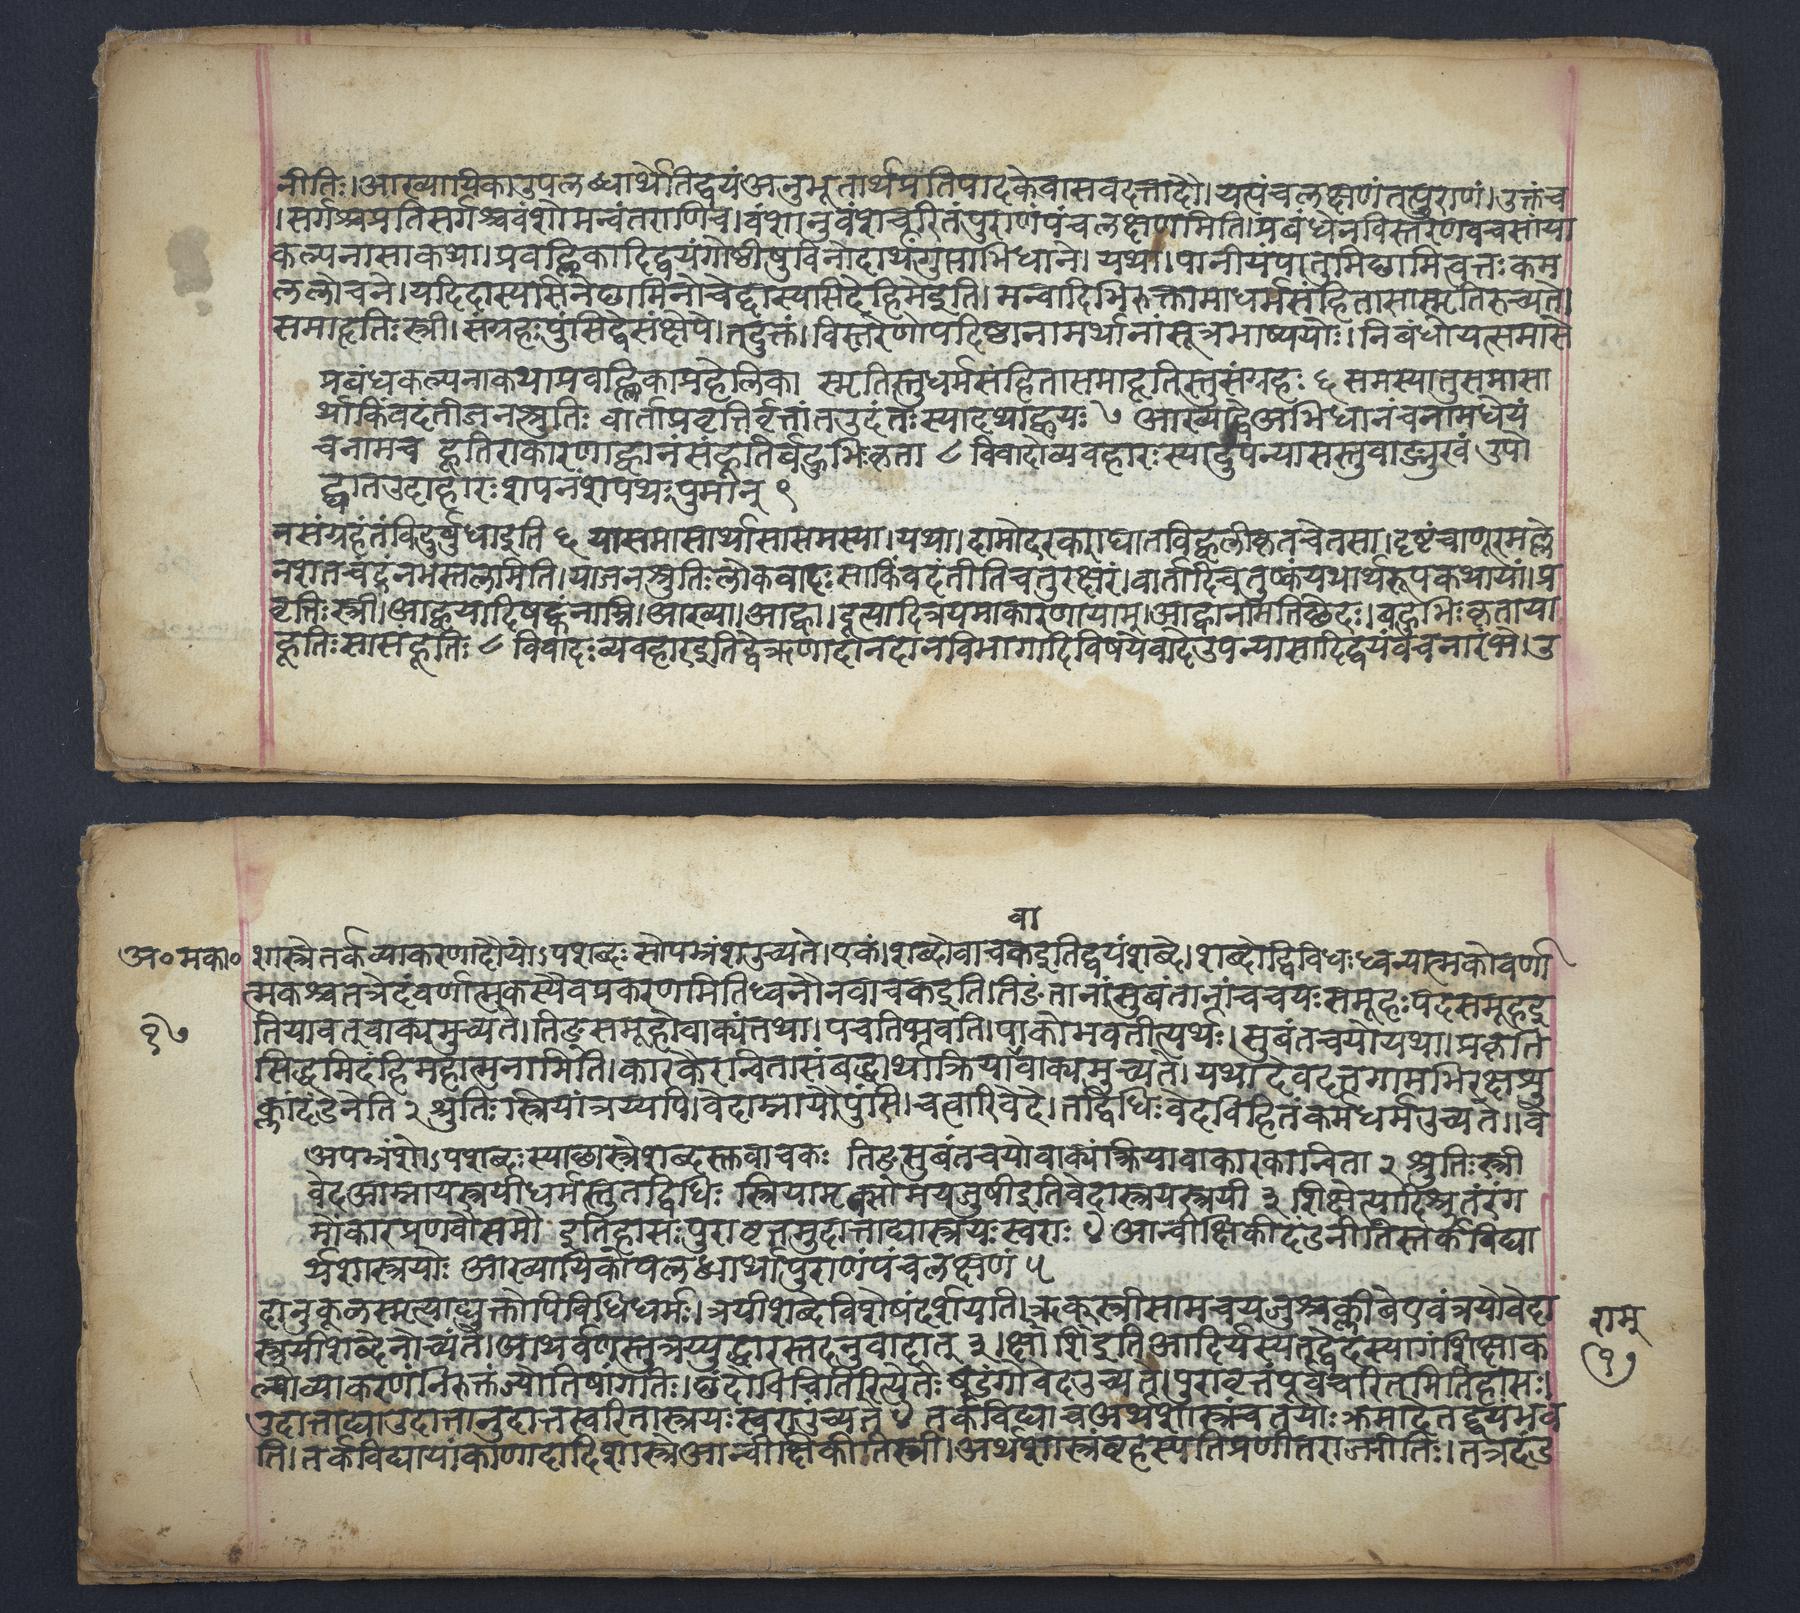 नीतिः।आख्यायिकाउपलब्धार्थेतिद्वयंअनुभूतार्थप्रतिपादकेवासवदत्तादौ।यत्पंचलक्षणंतत्पुराणं।उक्तंच
।सर्गश्चप्रतिसर्गश्चवंशोमन्वंतराणिच।वंशानुवंशचरितंपुराणंपंचलक्षणमिति।प्रबंधेनविस्तरेणवचसांया
कल्पनासाकथा।प्रवह्लिकादिद्वयंगोष्ठीषुविनोदार्थंगुप्ताभिधाने।यथा।पानीयपातुमिछामित्वत्तःकम
ललोचने।यदिदास्यसिनेछामिनोचेद्दास्यसिदेहिमेइति।मन्वादिभिरुक्तामाधर्मसंहितासास्मृतिरुच्यते।
समाहृतिःस्त्री।संग्रहःपुंसिद्वेसंक्षेपे।तदुक्तं।विस्तरेणोपदिष्ठानामर्थानांसूत्रभाष्ययोः।निबंधोयत्समासे
प्रबंधकल्पनाकथाप्रवह्लिकाप्रहेलिका स्मृतिस्तुधर्मसंहितासमाहृतिस्तुसंग्रहः ६ समस्यातुसमासा
र्थाकिंवदंतीजनश्रुतिः वार्ताप्रवृत्तिर्वृत्तांतउदंतःस्यादथाह्वयः ७ आख्याह्वेअभिधानंचनामधेयं
चनामच हूतिराकारणाह्वानंसंहूतिर्बहुभिःकृता ८ विवादोव्यवहारःस्यादुपन्यासस्तुवाङ्मुखं उपो
द्घातउदाहारःशपनंशपथःपुमान् ९
नसंग्रहंतंविदुर्बुधाइति ६ यासमासार्थासासमस्या।यथा।दामोदरकराघातविह्वलीकृतचेतसा।दृष्टंचाणूरमल्ले
नशतचंद्रंनभस्तलमिति।याजनश्रुतिःलोकवादःसाकिंवदंतीतिचतुरक्षरं।वार्तादिचतुष्कंयथार्थरूपकथायां।प्र
वृत्तिःस्त्री।आह्वयादिषट्कंनाम्नि।आख्या।आह्वा।हूत्यादित्रयमाकारणायाम्।आह्वानमितिछेदः।बहुभिःकृताया
हूतिःसासंहूतिः ८ विवादःव्यवहारइतिद्वेऋणादानदानविभागादिविषयेवादेउपन्यासादिद्वयंवचनारंभे।उ
वा
अ०मका० शास्त्रेतर्कव्याकरणादौयोऽपशब्दःसोपभ्रंशउच्यते।एकं।शब्दोवाचकइतिद्वयंशब्दे।शब्दोद्विविधःध्वन्यात्मकोवर्णा
त्मकश्चतत्रेदंवर्णात्मकस्यैवप्रकरणमितिध्वनौनवाचकइति।तिङंतानांसुबंतानांचचयःसमूहःपदसमूहइ
१७ तियावत्वाक्यमुच्यते।तिङसमूहोवाक्यंतथा।पचतिभवति।पाकोभवतीत्यर्थः।सुबंतचयोयथा।प्रकृति
सिद्धमिदंहिमहात्मनामिति।कारकैरन्वितासंबद्धार्थाक्रियावाक्यमुच्यते।यथादेवदत्तगामभिरक्षशु
क्लांदंडेनेति २ श्रुतिःस्त्रियांत्रय्यपि।वेदाम्नायौपुंसि।चत्वारिवेदे।तद्विधिःवेदविहितंकर्मधर्मउच्यते।।वे
अपभ्रंशोऽपशब्दःस्याछास्त्रेशब्दस्तुवाचकः तिङसुबंतचयोवाक्यंक्रियावाकारकान्विता २ श्रुतिःस्त्री
वेदआम्नायस्त्रयीधर्मस्तुतद्विधिः स्त्रियामृक्सामयजुषीइतिवेदास्त्रयस्त्रयी ३ शिक्षेत्यादिश्रुतेरंग
मोंकारप्रणवौसमौ इतिहासःपुरावृत्तमुदात्ताद्यास्त्रयःस्वराः ४ आन्वीक्षिकीदंडनीतिस्तर्कविद्या
र्थशास्त्रयोः आख्यायिकोपलब्धार्थापुराणंपंचलक्षणं ५
दानुकूलस्मृत्याद्युक्तोपिविधिधर्मः।त्रयीशब्देविशेषंदर्शयति।ऋक्स्त्रीसामचयजुश्चक्लीबेएवंत्रयोवेदा
स्त्रयीशब्देनोच्यंते।अथर्वणस्तुत्रय्युद्धारस्तदनुवादात् ३।क्षाशिइतिआदिर्यस्यतद्वेदस्यांगंशिक्षाक
ल्पोव्याकरणंनिरुक्तंज्योतिषांगतिः।छंदोविचितिरित्येतैःषडंगोवेदउच्यते।पुरावृत्तंपूर्वचरितमितिहासः।
उदात्ताद्याउदात्तानुदात्तस्वरितास्त्रयःस्वराउच्यंते ४ तर्कविद्याचअर्थशास्त्रंचतयोःक्रमादेतद्द्वयंभव
ति।तर्कविद्यायांकाणादादिशास्त्रेआन्वीक्षिकीतिस्त्री।अर्थशास्त्रंबृहस्पतिप्रणीतराजनीतिः।तत्रदंड
राम्
१७